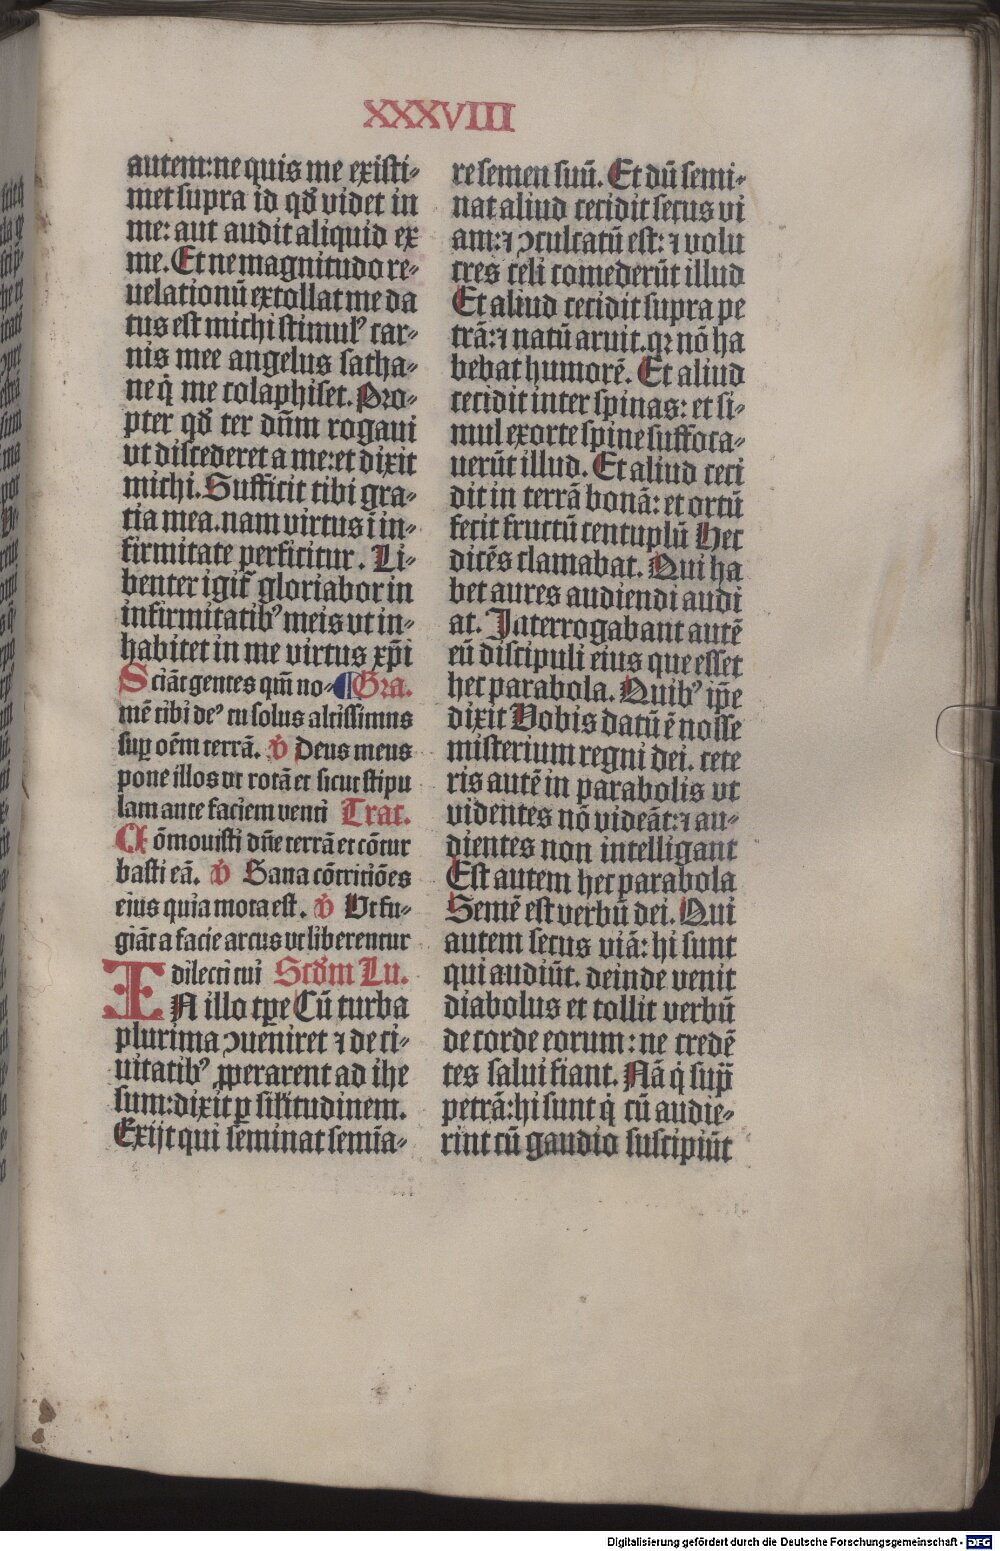 XXXVIII
autem: ne quis me existi-
met supra id qđ videt in
me: aut audit aliquid ex
me. Et ne magnitudo re-
uelationū extollat me da
tus est michi stimulꝰ car-
nis mee angelus satha-
ne q̇ me colaphiset. Pro-
pter qđ ter dn̄m rogaui
vt discederet a me: et dixit
michi. Sufficit tibi gra-
tia mea. nam virtus ī in-
firmitate perficitur. Li-
benter igit̄ gloriabor in
infirmitatibꝰ meis vt in-
habitet in me virtus xp̄i
Sciāt gentes qm̄ no- ¶ Gra.
mē tibi deꝰ tu solus altissimus
suꝑ oēm terrā. ꝟ Deus meus
pone illos vt rotā et sicut stipu
lam ante faciem venti Trac.
Cōmouisti dn̄e terrā et cōtur
basti eā. ꝟ Sana cōtritiōes
eius quia mota est. ꝟ Ut fu-
giāt a facie arcus vt liberentur
dilecti tui Scđm Lu.
IN illo tꝑe Cū turba
plurima ꝯueniret ⁊ de ci-
uitatibꝰ ꝓperarent ad ihe
sum: dixit ꝑ silitudinem.
Exijt qui seminat semīa-
re semen suū. Et dū semi-
nat aliud cecidit secus vi
am: ⁊ ꝯculcatū est: ⁊ volu
cres celi comederūt illud
Et aliud cecidit supra pe
trā: ⁊ natū aruit. qꝛ nō ha
bebat humorē. Et aliud
cecidit inter spinas: et si-
mul exorte spine suffoca-
uerūt illud. Et aliud ceci
dit in terrā bonā: et ortū
fecit fructū centuplū Hec
dicēs clamabat. Qui ha
bet aures audiendi audi
at. Interrogabant autē
eū discipuli eius que esset
hec parabola. Quibꝰ ip̄e
dixit Vobis datū ē nosse
misterium regni dei. cete
ris autē in parabolis vt
videntes nō videāt: ⁊ au-
dientes non intelligant
Est autem hec parabola
Semē est verbū dei. Qui
autem secus viā: hi sunt
qui audiūt. deinde venit
diabolus et tollit verbū
de corde eorum: ne credē
tes salui fiant. Nā q̇ sup̄
petrā: hi sunt q̇ cū audie-
rint cū gaudio suscipiūt
Digitalisierung gefördert durch die Deutsche Forschungsgemeinschaft - DFG